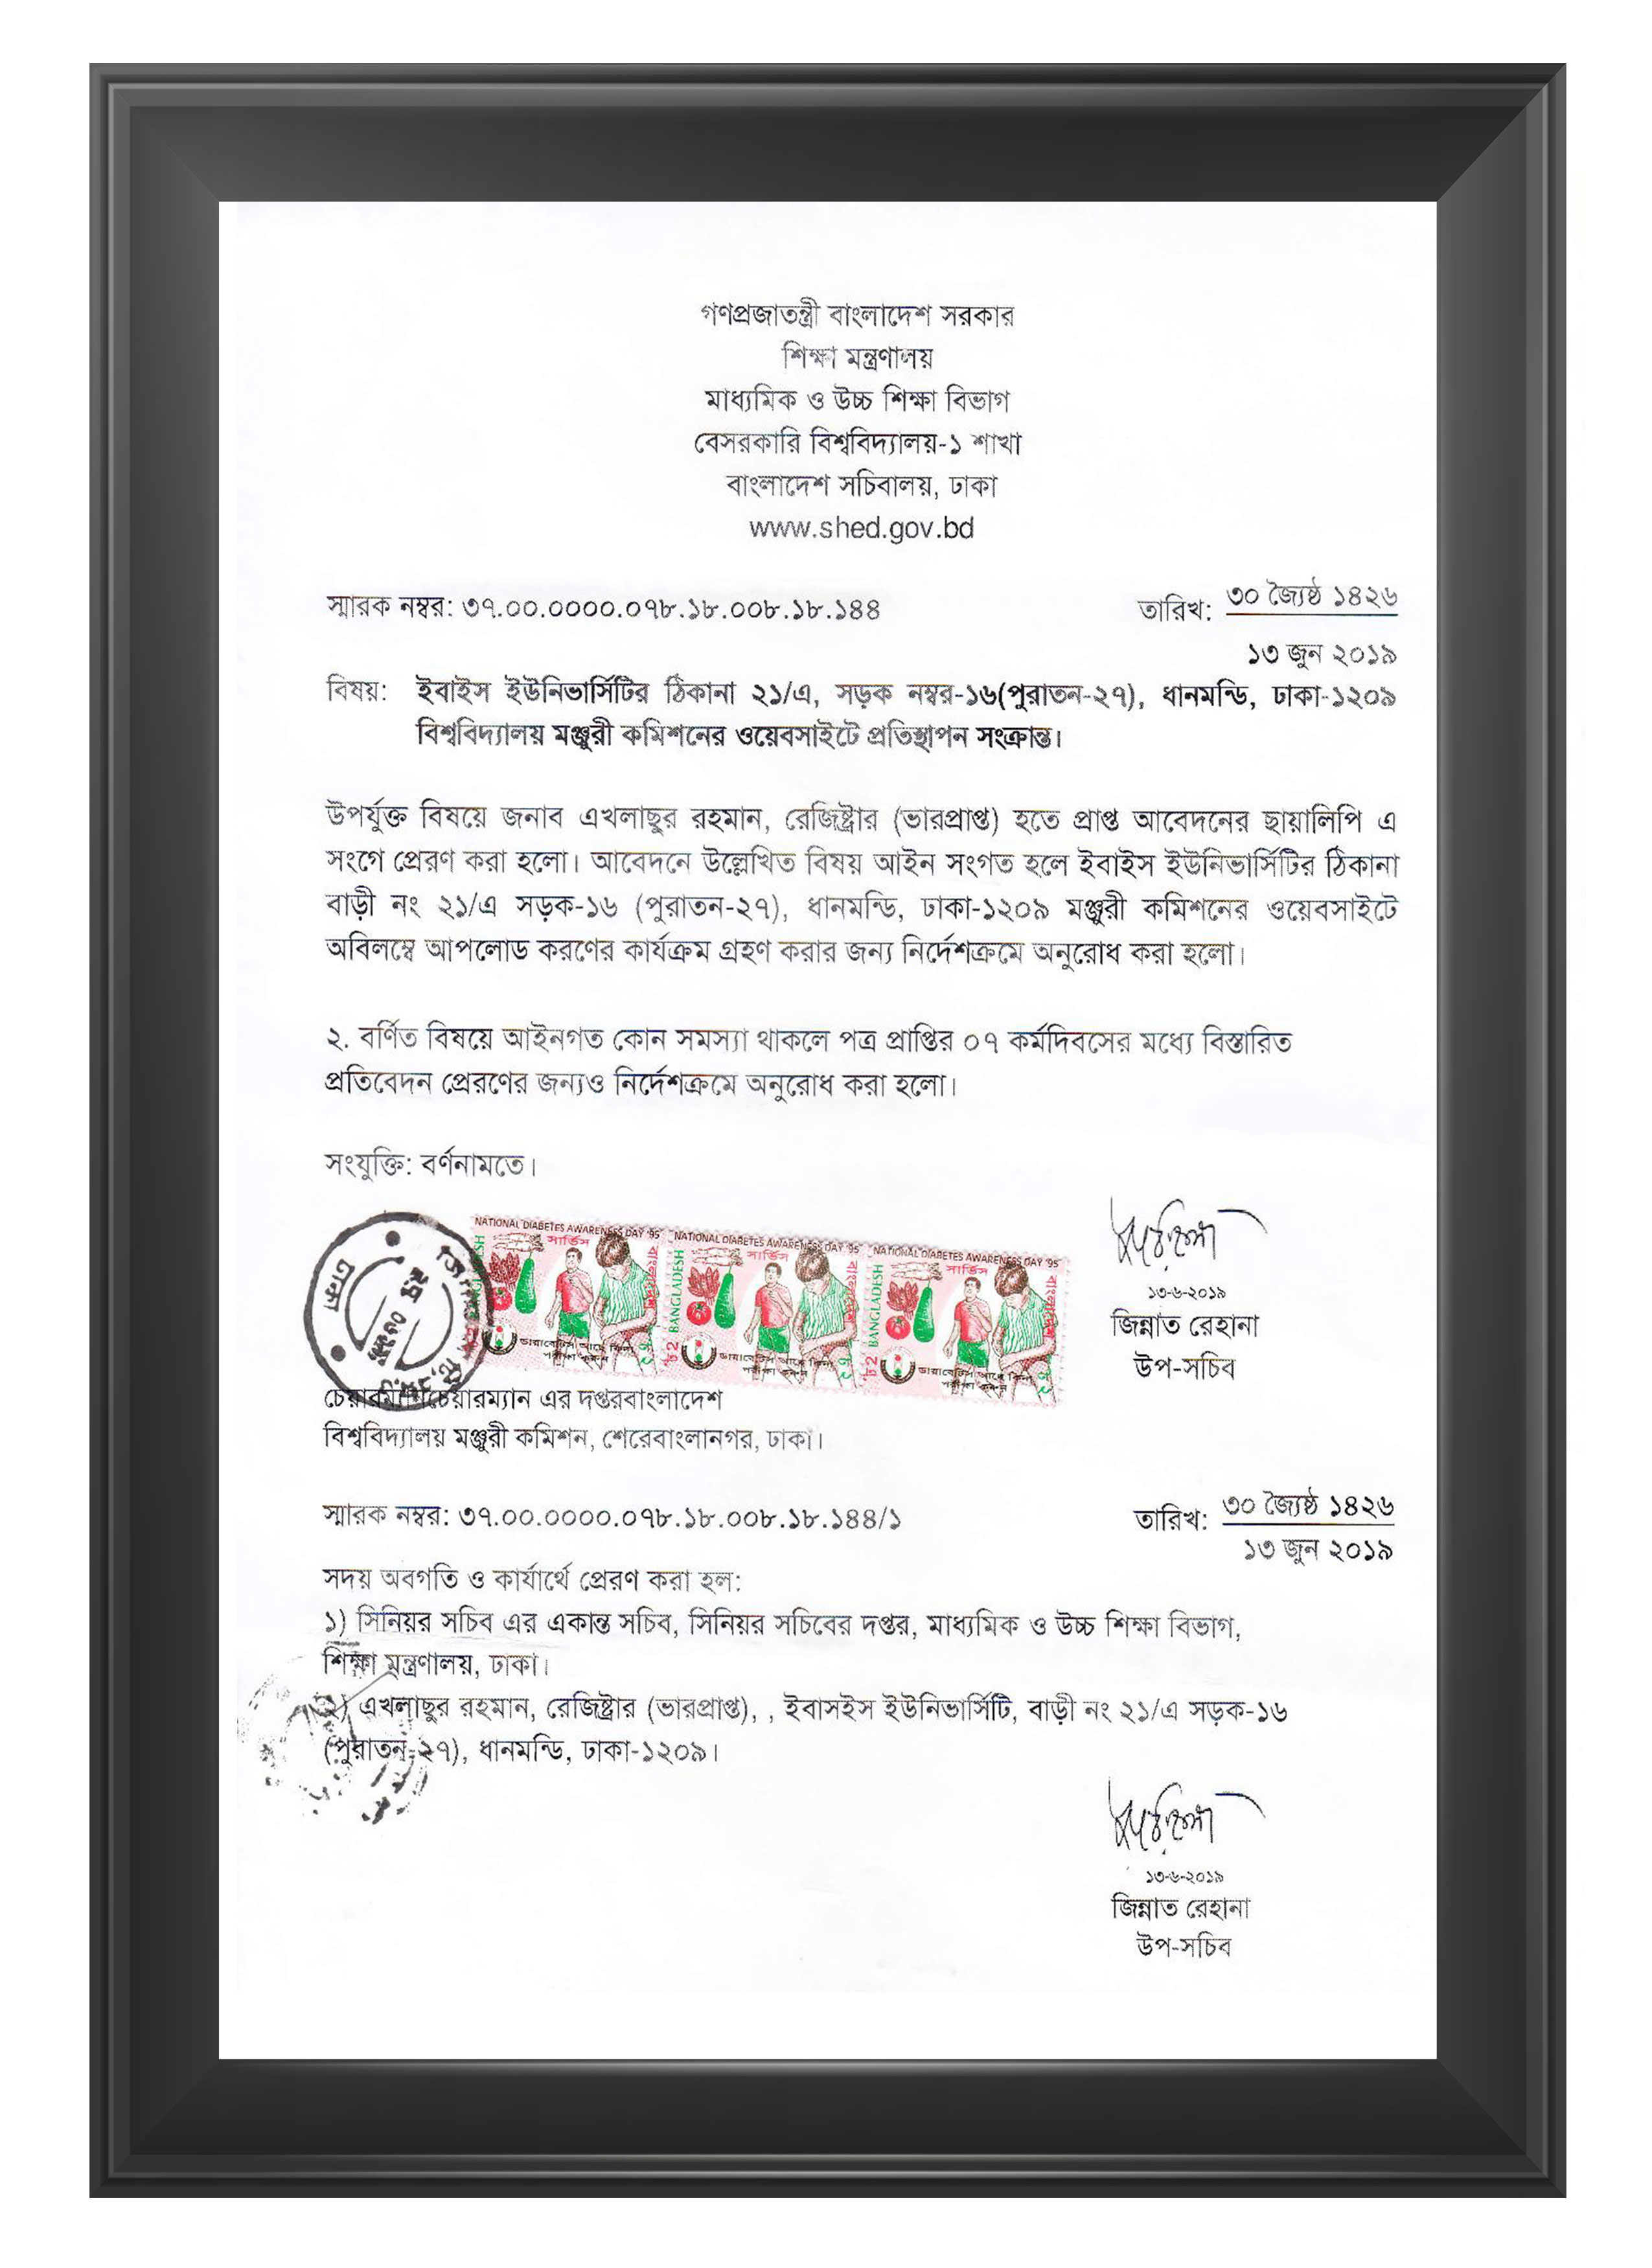 গণপ্রজাতন্ত্রী বাংলাদেশ সরকার
শিক্ষা মন্ত্রণালয়
মাধ্যমিক ও উচ্চ শিক্ষা বিভাগ
বেসরকারি বিশ্ববিদ্যালয়-১ শাখা
বাংলাদেশ সচিবালয়, ঢাকা
www.shed.gov.bd
স্মারক নম্বর: ৩৭.০০.০০০০.০৭৮.১৮.০০৮.১৮.১৪৪ তারিখ: ৩০ জ্যৈষ্ঠ ১৪২৬
১৩ জুন ২০১৯
বিষয়: ইবাইস ইউনিভার্সিটির ঠিকানা ২১/এ, সড়ক নম্বর-১৬(পুরাতন-২৭), ধানমন্ডি, ঢাকা-১২০৯
বিশ্ববিদ্যালয় মঞ্জুরী কমিশনের ওয়েবসাইটে প্রতিস্থাপন সংক্রান্ত।
উপর্যুক্ত বিষয়ে জনাব এখলাছুর রহমান, রেজিষ্ট্রার (ভারপ্রাপ্ত) হতে প্রাপ্ত আবেদনের ছায়ালিপি এ
সংগে প্রেরণ করা হলো। আবেদনে উল্লেখিত বিষয় আইন সংগত হলে ইবাইস ইউনিভার্সিটির ঠিকানা
বাড়ী নং ২১/এ সড়ক-১৬ (পুরাতন-২৭), ধানমন্ডি, ঢাকা-১২০৯ মঞ্জুরী কমিশনের ওয়েবসাইটে
অবিলম্বে আপলোড করণের কার্যক্রম গ্রহণ করার জন্য নির্দেশক্রমে অনুরোধ করা হলো।
২. বর্ণিত বিষয়ে আইনগত কোন সমস্যা থাকলে পত্র প্রাপ্তির ০৭ কর্মদিবসের মধ্যে বিস্তারিত
প্রতিবেদন প্রেরণের জন্যও নির্দেশক্রমে অনুরোধ করা হলো।
সংযুক্তি: বর্ণনামতে।
NATIONAL DIABETES AWARENESS DAY '95 NATIONAL DIABETES AWARENESS DAY '95 NATIONAL DIABETES AWARENESS DAY '95
সার্ভিস সার্ভিস সার্ভিস
BANGLADESH BANGLADESH
বাংলাদেশ বাংলাদেশ বাংলাদেশ
ডায়াবেটিস আছে কিনা ডায়াবেটিস আছে কিনা ডায়াবেটিস আছে কিনা
পরীক্ষা করুন পরীক্ষা করুন পরীক্ষা করুন
ঢাকা
১৩-৬-২০১৯
জিন্নাত রেহানা
উপ-সচিব
চেয়ারম্যানচেয়ারম্যান এর দপ্তরবাংলাদেশ
বিশ্ববিদ্যালয় মঞ্জুরী কমিশন, শেরেবাংলানগর, ঢাকা।
স্মারক নম্বর: ৩৭.০০.০০০০.০৭৮.১৮.০০৮.১৮.১৪৪/১ তারিখ: ৩০ জ্যৈষ্ঠ ১৪২৬
১৩ জুন ২০১৯
সদয় অবগতি ও কার্যার্থে প্রেরণ করা হল:
১) সিনিয়র সচিব এর একান্ত সচিব, সিনিয়র সচিবের দপ্তর, মাধ্যমিক ও উচ্চ শিক্ষা বিভাগ,
শিক্ষা মন্ত্রণালয়, ঢাকা।
২) এখলাছুর রহমান, রেজিষ্ট্রার (ভারপ্রাপ্ত), , ইবাসইস ইউনিভার্সিটি, বাড়ী নং ২১/এ সড়ক-১৬
(পুরাতন-২৭), ধানমন্ডি, ঢাকা-১২০৯।
১৩-৬-২০১৯
জিন্নাত রেহানা
উপ-সচিব